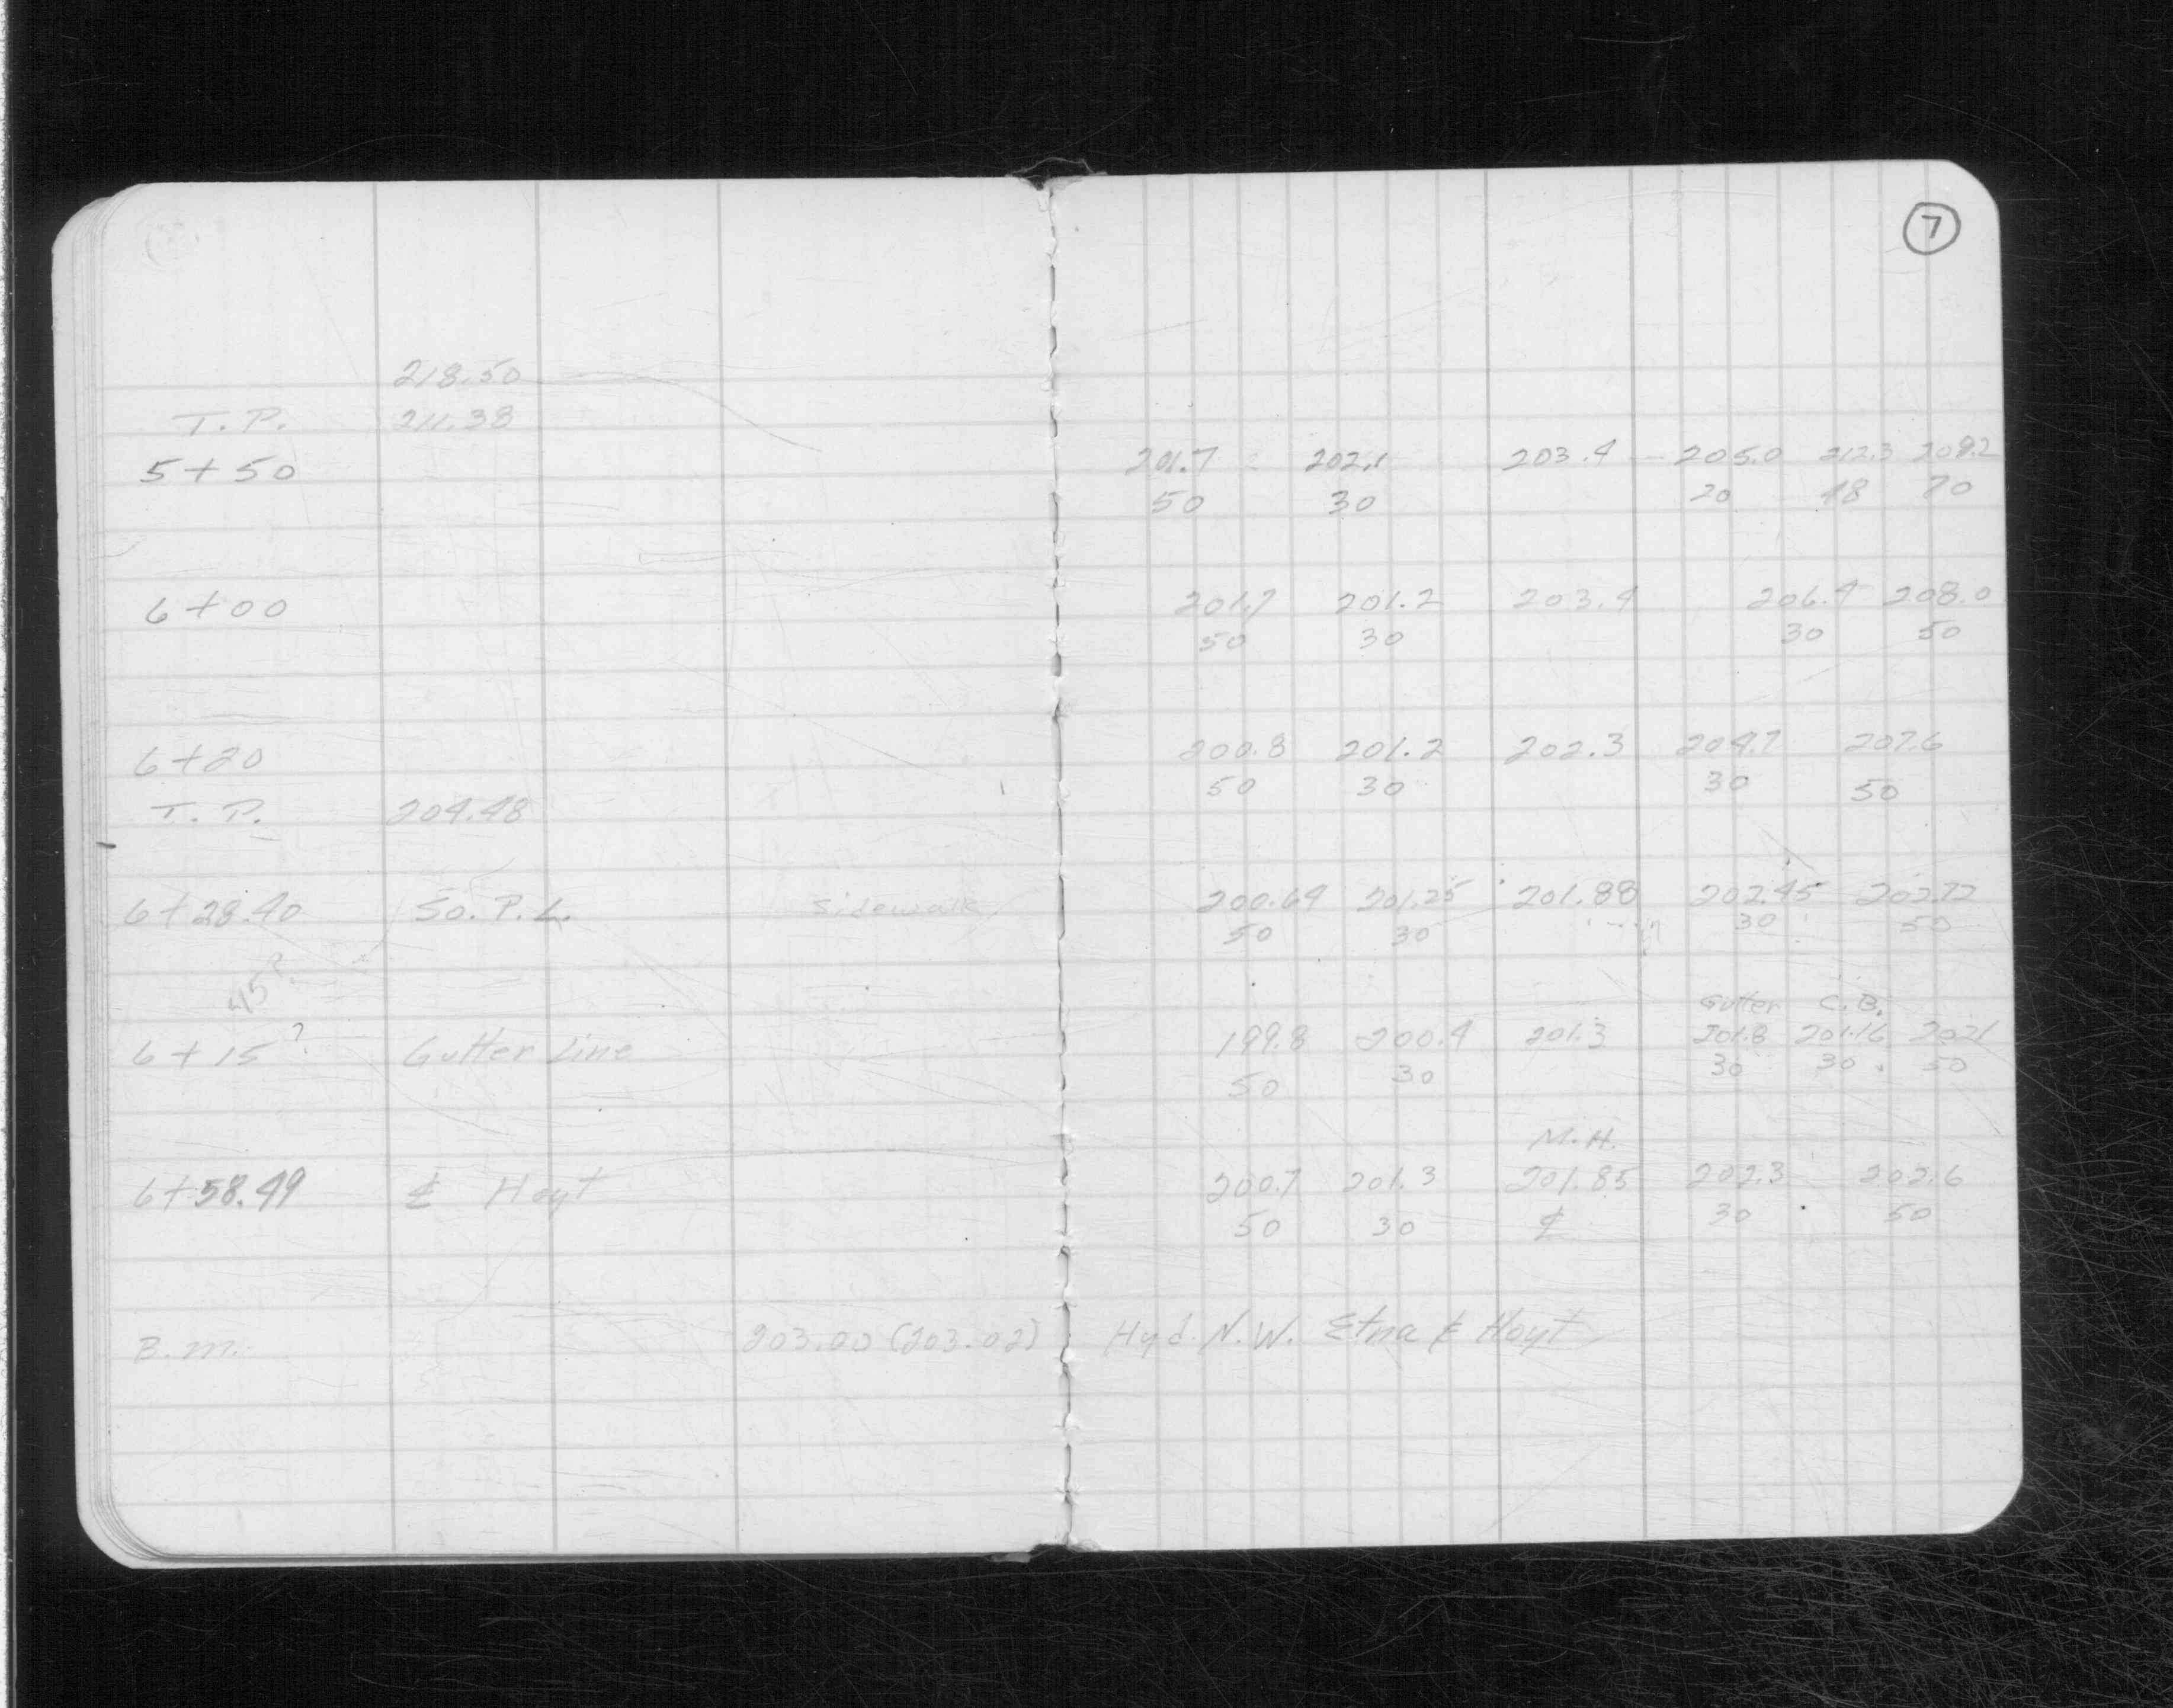 7
218.50
T. P. 211.38
5+50 201.7 202.1 203.4 205.0 212.3 208.2
50 30 20 48 70
6+00 201.7 201.2 203.4 206.4 208.0
50 30 30 50
6+20 200.8 201.2 202.3 204.7 207.6
50 30 30 50
T. P. 204.48
6+28.40 So. P. L. Sidewalk 200.64 201.25 201.88 202.45 202.72
50 30 30 50
45?
Gutter C.B.
6+15? Gutter Line 199.8 200.4 201.3 201.8 201.16 202.1
50 30 30 30 50
M.H.
6+58.49 ℄ Hoyt 200.7 201.3 201.85 202.3 202.6
50 30 ℄ 30 50
B.M. 203.00 (203.02) Hyd. N.W. Etna & Hoyt